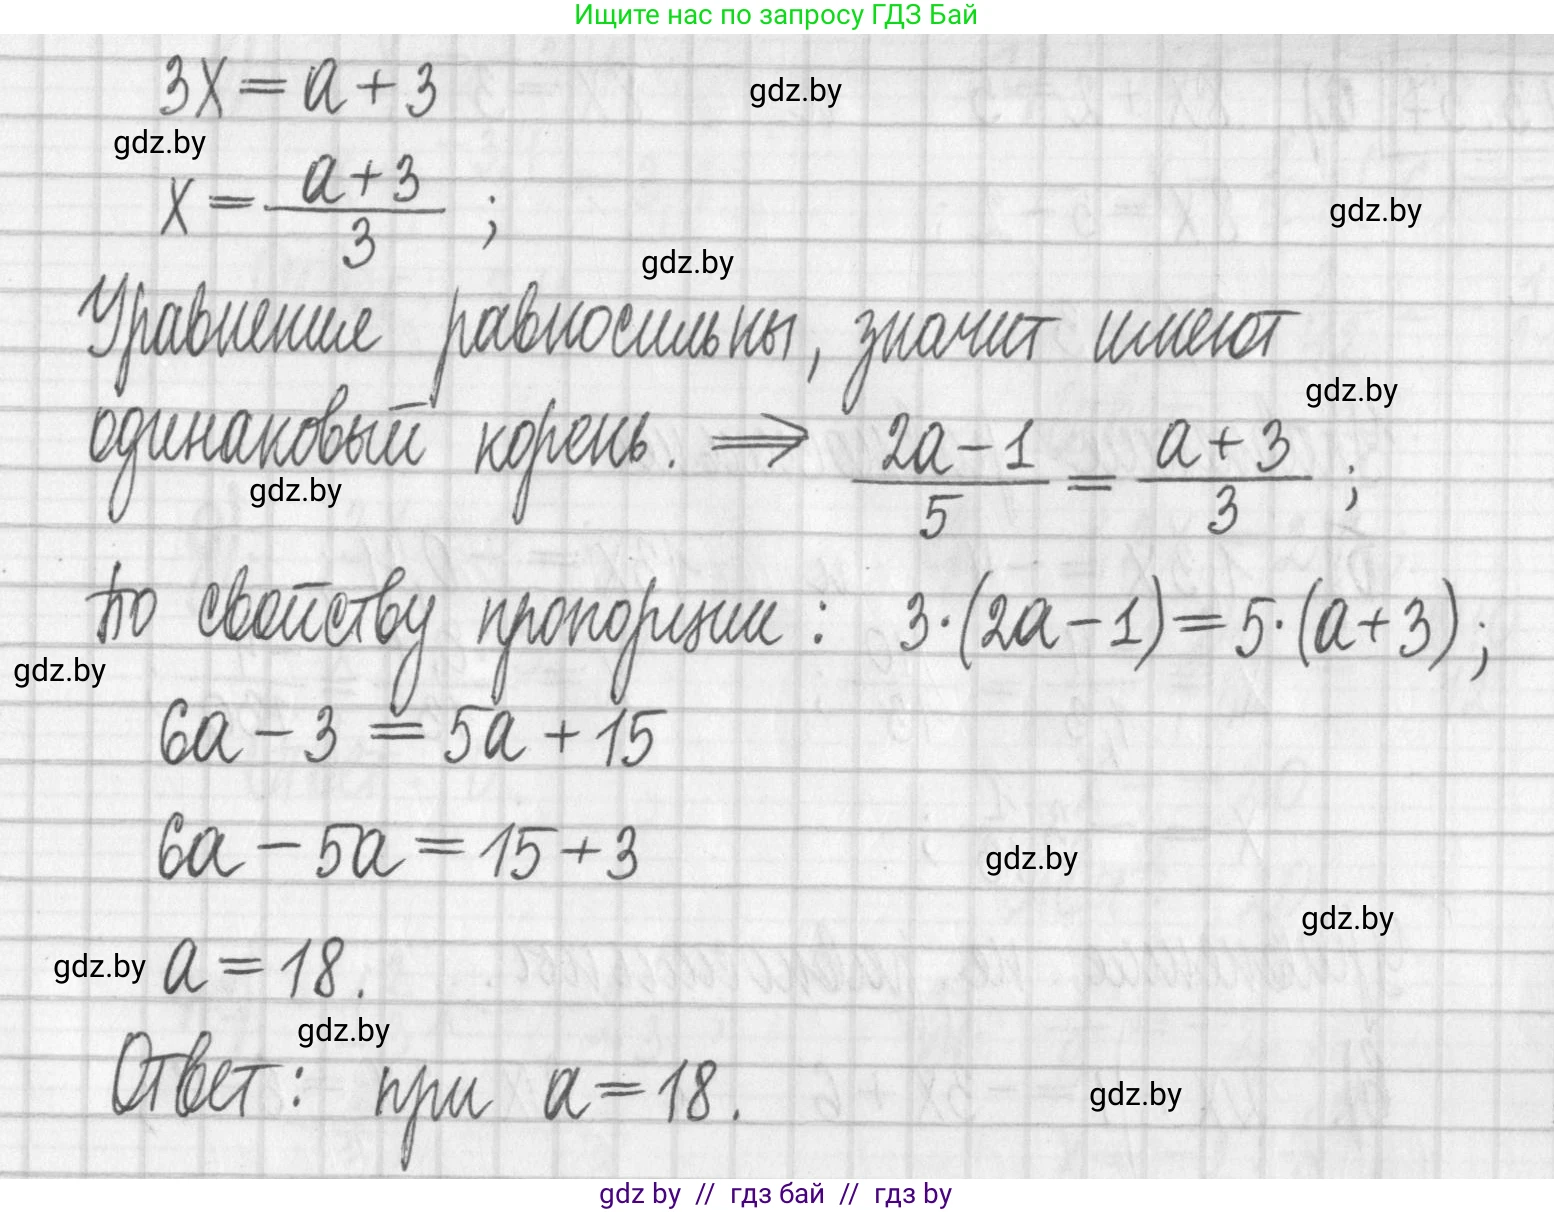 Ищите нас по запросу ГДЗ Бай
3x = a + 3
gdz.by
gdz.by
x = \frac{a+3}{3} ;
gdz.by
gdz.by
Уравнения равносильны, значит имеют
gdz.by
одинаковый корень. ⟹ \frac{2a-1}{5} = \frac{a+3}{3} ;
gdz.by
По свойству пропорции : 3·(2a-1)=5·(a+3) ;
gdz.by
6a - 3 = 5a + 15
6a - 5a = 15 + 3
gdz.by
gdz.by
gdz.by a = 18.
gdz.by
Ответ : при a = 18.
gdz.by
gdz by // гдз бай // гдз by